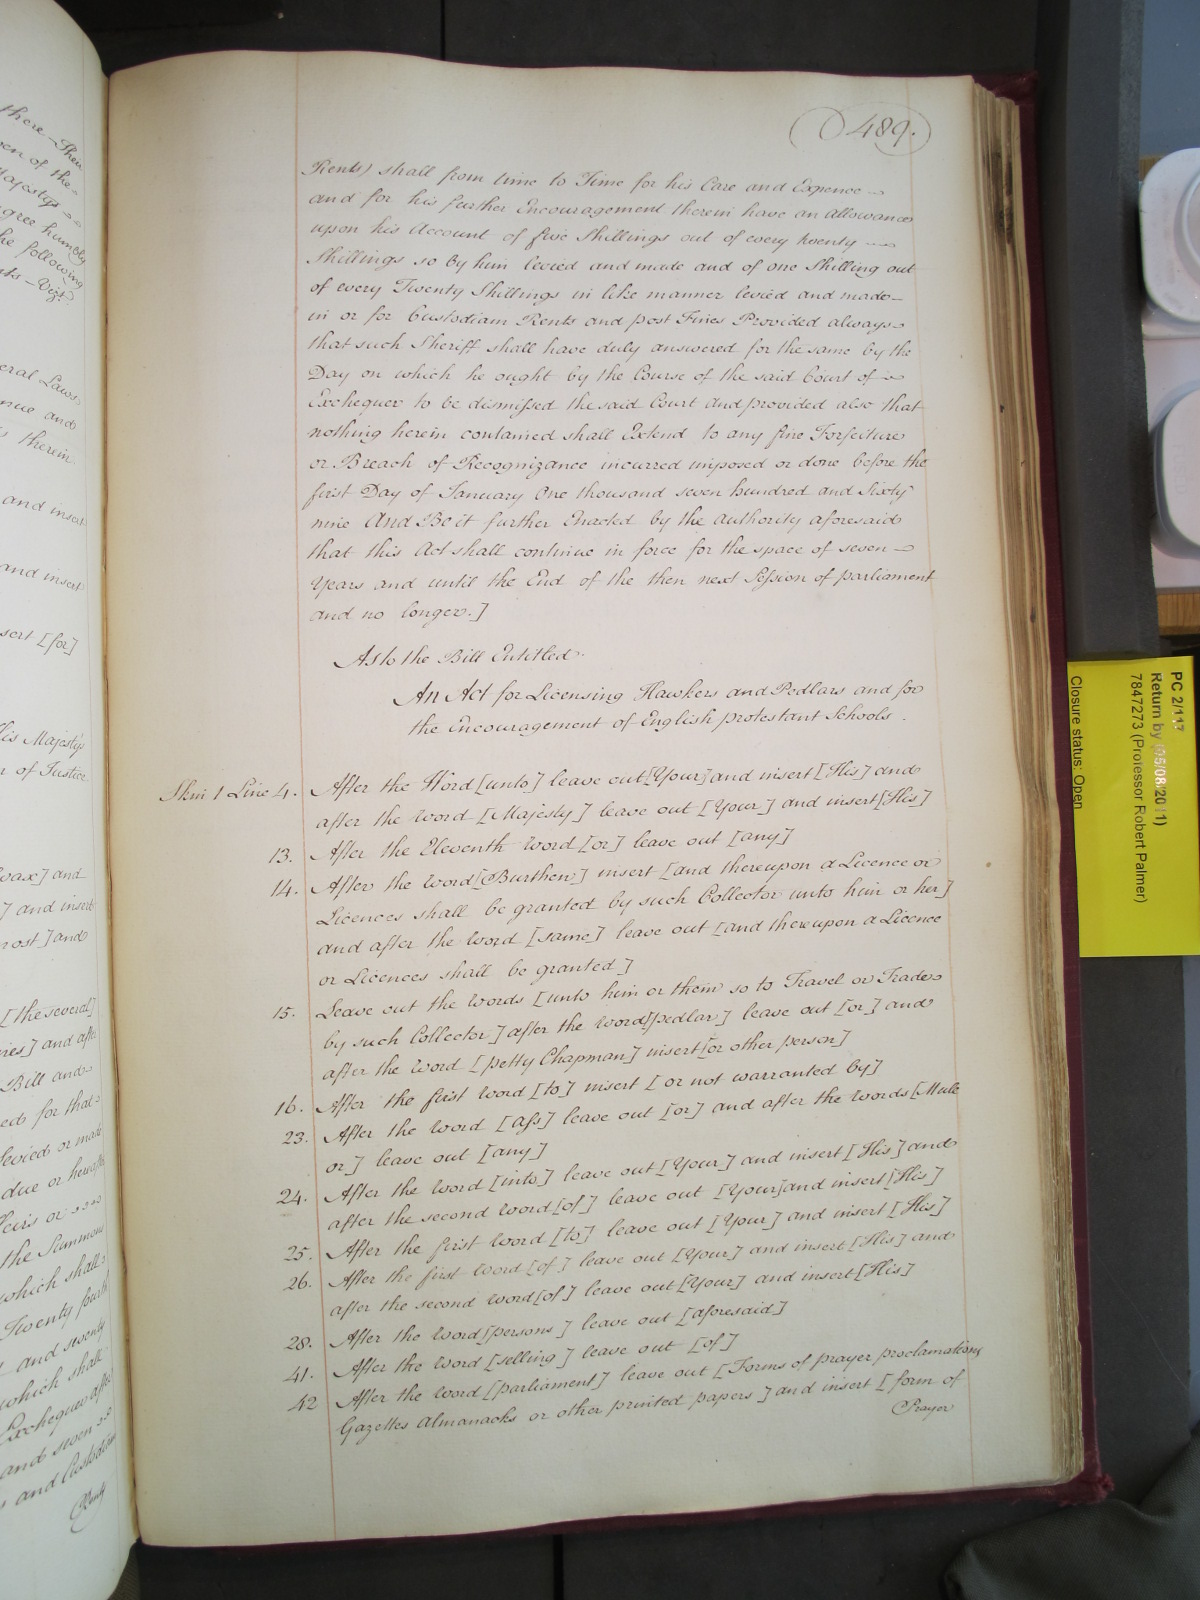 489.
Rents) shall from time to Time for his Care and Expence
and for his further Encouragement therein have an Allowance
upon his Account of five Shillings out of every twenty
Shillings so by him levied and made and of one Shilling out
of every Twenty Shillings in like manner levied and made
in or for Custodiam Rents and post Fines Provided always
that such Sheriff shall have duly answered for the same by the
Day on which he ought by the Course of the said Court of
Exchequer to be dismissed the said Court and provided also that
nothing herein contained shall Extend to any fine Forfeiture
or Breach of Recognizance incurred imposed or done before the
first Day of January One thousand seven hundred and Sixty
nine And Be it further Enacted by the authority aforesaid
that this Act shall continue in force for the space of seven
Years and until the End of the then next Session of parliament
and no longer.]
As to the Bill Entitled.
An Act for Licensing Hawkers and Pedlars and for
the Encouragement of English protestant Schools.
Skin 1 Line 4. After the Word [unto] leave out [Your] and insert [His] and
after the word [Majesty] leave out [Your] and insert [His]
13. After the Eleventh word [or] leave out [any]
14. After the word [Burthen] insert [and thereupon a Licence or
Licences shall be granted by such Collector unto him or her]
and after the word [same] leave out [and thereupon a Licence
or Licences shall be granted]
15. Leave out the words [unto him or them so to Travel or Trade
by such Collector] after the word [pedlar] leave out [or] and
after the word [petty Chapman] insert [or other person]
16. After the first word [to] insert [or not warranted by]
23. After the word [ass] leave out [or] and after the words [Mule
or] leave out [any]
24. After the word [into] leave out [Your] and insert [His] and
after the second word [of] leave out [Your] and insert [His]
25. After the first word [to] leave out [Your] and insert [His]
26. After the first word [of] leave out [Your] and insert [His] and
after the second word [of] leave out [Your] and insert [His]
28. After the word [persons] leave out [aforesaid]
41. After the word [selling] leave out [of]
42 After the word [parliament] leave out [Forms of prayer proclamations
Gazettes Almanacks or other printed papers] and insert [form of
Prayer
PC 2/117
Return by (05/08/2011)
7847273 (Professor Robert Palmer)
Closure status: Open